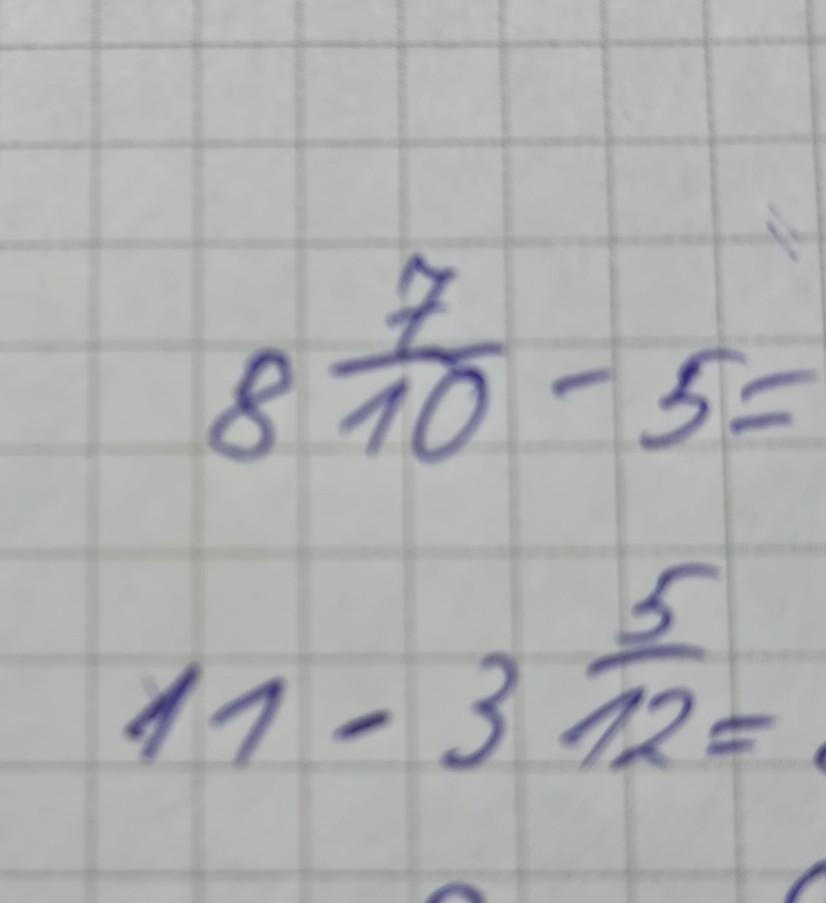 8 7/10 - 5 =
11 - 3 5/12 =